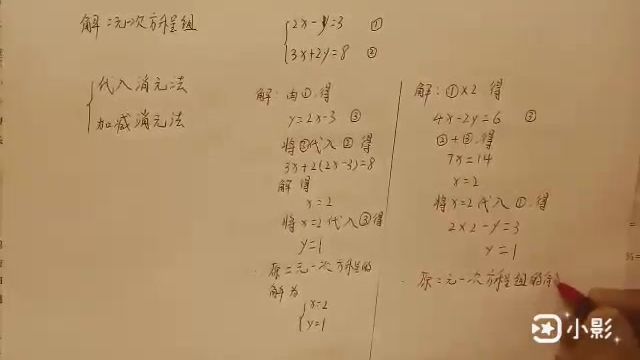 解二元一次方程组
2x-y=3 ①
3x+2y=8 ②
代入消元法
加减消元法
解:由①,得
y=2x-3 ③
将③代入②得
3x+2(2x-3)=8
解得
x=2
将x=2代入③得
y=1
∴原二元一次方程组的
解为
x=2
y=1
解:①×2 得
4x-2y=6 ③
②+③,得
7x=14
x=2
将x=2代入①,得
2×2-y=3
y=1
∴原二元一次方程组的
小影